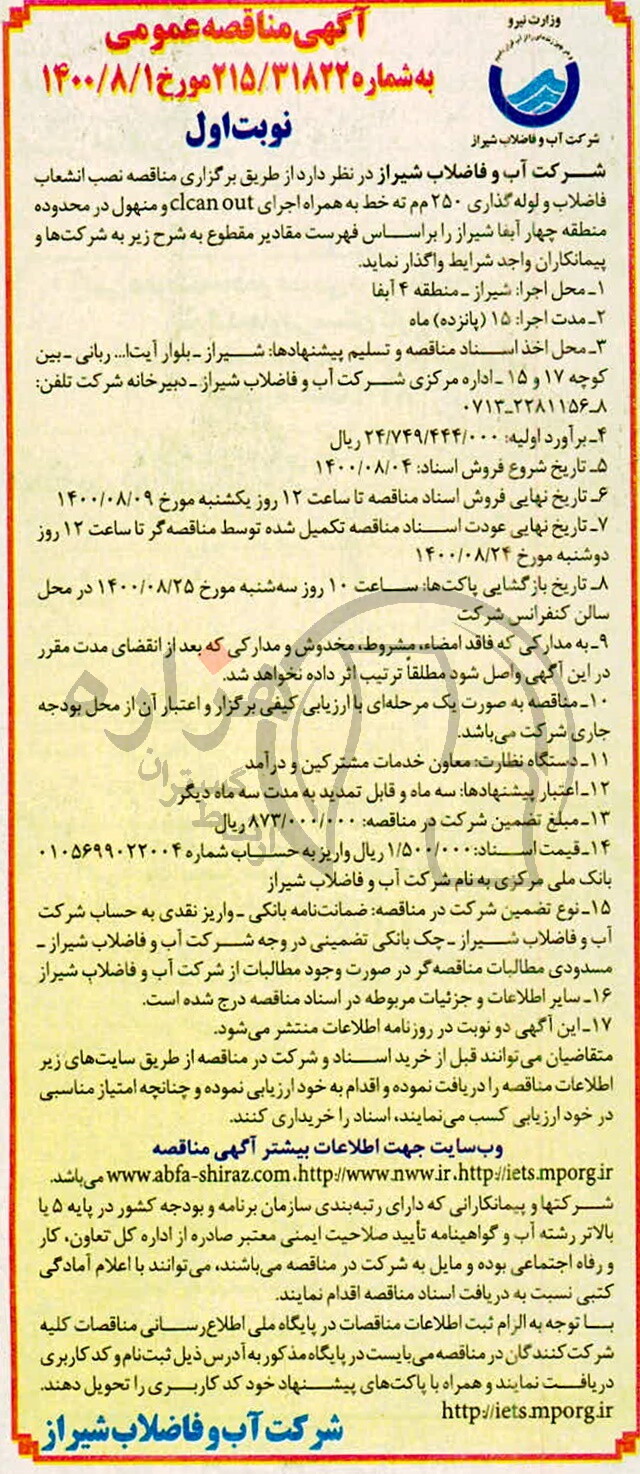 وزارت نیرو
شرکت آب و فاضلاب شیراز
آگهی مناقصه عمومی
به شماره ۲۱۵/۳۱۸۲۲ مورخ ۱۴۰۰/۸/۱
نوبت اول
شرکت آب و فاضلاب شیراز در نظر دارد از طریق برگزاری مناقصه نصب انشعاب
فاضلاب و لوله گذاری ۲۵۰ مم ته خط به همراه اجرای clcan out و منهول در محدوده
منطقه چهار آبفا شیراز را براساس فهرست مقادیر مقطوع به شرح زیر به شرکت‌ها و
پیمانکاران واجد شرایط واگذار نماید.
۱ـ محل اجرا: شیراز ـ منطقه ۴ آبفا
۲ـ مدت اجرا: ۱۵ (پانزده) ماه
۳ـ محل اخذ اسناد مناقصه و تسلیم پیشنهادها: شیراز ـ بلوار آیت‌ا... ربانی ـ بین
کوچه ۱۷ و ۱۵ ـ اداره مرکزی شرکت آب و فاضلاب شیراز ـ دبیرخانه شرکت تلفن:
۸ـ۲۲۸۱۱۵۶ـ۰۷۱۳
۴ـ برآورد اولیه: ۲۴/۷۴۹/۴۴۴/۰۰۰ ریال
۵ـ تاریخ شروع فروش اسناد: ۱۴۰۰/۰۸/۰۴
۶ـ تاریخ نهایی فروش اسناد مناقصه تا ساعت ۱۲ روز یکشنبه مورخ ۱۴۰۰/۰۸/۰۹
۷ـ تاریخ نهایی عودت اسناد مناقصه تکمیل شده توسط مناقصه‌گر تا ساعت ۱۲ روز
دوشنبه مورخ ۱۴۰۰/۰۸/۲۴
۸ـ تاریخ بازگشایی پاکت‌ها: ساعت ۱۰ روز سه‌شنبه مورخ ۱۴۰۰/۰۸/۲۵ در محل
سالن کنفرانس شرکت
۹ـ به مدارکی که فاقد امضاء، مشروط، مخدوش و مدارکی که بعد از انقضای مدت مقرر
در این آگهی واصل شود مطلقاً ترتیب اثر داده نخواهد شد.
۱۰ـ مناقصه به صورت یک مرحله‌ای با ارزیابی کیفی برگزار و اعتبار آن از محل بودجه
جاری شرکت می‌باشد.
۱۱ـ دستگاه نظارت: معاون خدمات مشترکین و درآمد
۱۲ـ اعتبار پیشنهادها: سه ماه و قابل تمدید به مدت سه ماه دیگر
۱۳ـ مبلغ تضمین شرکت در مناقصه: ۸۷۳/۰۰۰/۰۰۰ ریال
۱۴ـ قیمت اسناد: ۱/۵۰۰/۰۰۰ ریال واریز به حساب شماره ۰۱۰۵۶۹۹۰۲۲۰۰۴
بانک ملی مرکزی به نام شرکت آب و فاضلاب شیراز
۱۵ـ نوع تضمین شرکت در مناقصه: ضمانت‌نامه بانکی ـ واریز نقدی به حساب شرکت
آب و فاضلاب شیراز ـ چک بانکی تضمینی در وجه شرکت آب و فاضلاب شیراز ـ
مسدودی مطالبات مناقصه‌گر در صورت وجود مطالبات از شرکت آب و فاضلاب شیراز
۱۶ـ سایر اطلاعات و جزئیات مربوطه در اسناد مناقصه درج شده است.
۱۷ـ این آگهی دو نوبت در روزنامه اطلاعات منتشر می‌شود.
متقاضیان می‌توانند قبل از خرید اسناد و شرکت در مناقصه از طریق سایت‌های زیر
اطلاعات مناقصه را دریافت نموده و اقدام به خود ارزیابی نموده و چنانچه امتیاز مناسبی
در خود ارزیابی کسب می‌نمایند، اسناد را خریداری کنند.
وب‌سایت جهت اطلاعات بیشتر آگهی مناقصه
www.abfa-shiraz.com،http://www.nww.ir،http://iets.mporg.ir می‌باشد.
شرکتها و پیمانکارانی که دارای رتبه‌بندی سازمان برنامه و بودجه کشور در پایه ۵ یا
بالاتر رشته آب و گواهینامه تأیید صلاحیت ایمنی معتبر صادره از اداره کل تعاون، کار
و رفاه اجتماعی بوده و مایل به شرکت در مناقصه می‌باشند، می‌توانند با اعلام آمادگی
کتبی نسبت به دریافت اسناد مناقصه اقدام نمایند.
با توجه به الزام ثبت اطلاعات مناقصات در پایگاه ملی اطلاع‌رسانی مناقصات کلیه
شرکت‌کنندگان در مناقصه می‌بایست در پایگاه مذکور به آدرس ذیل ثبت‌نام و کد کاربری
دریافت نمایند و همراه با پاکت‌های پیشنهاد خود کد کاربری را تحویل دهند.
http://iets.mporg.ir
شرکت آب و فاضلاب شیراز